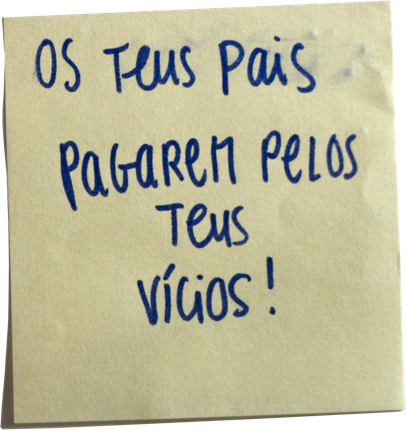 OS Teus Pais
PAGAREM PELOS
TEUS
VÍCIOS!